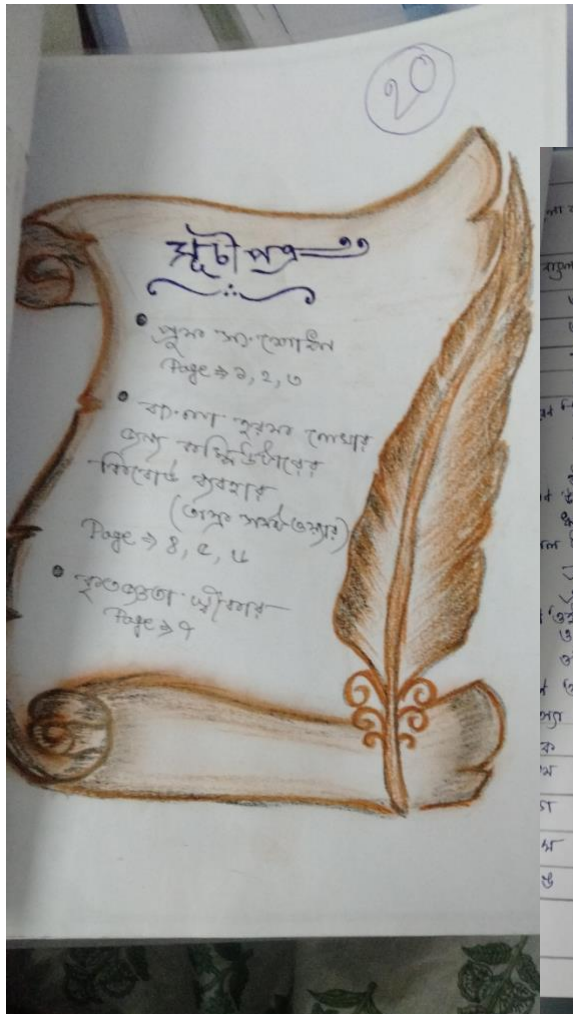 ২০
সূচীপত্র
প্রুফ সংশোধন
Page → ১, ২, ৩
বাংলা হরফ লেখার
জন্য কম্পিউটারের
কিবোর্ড ব্যবহার
(অভ্র সফটওয়্যার)
Page → ৪, ৫, ৬
কৃতজ্ঞতা স্বীকার
Page → ৭